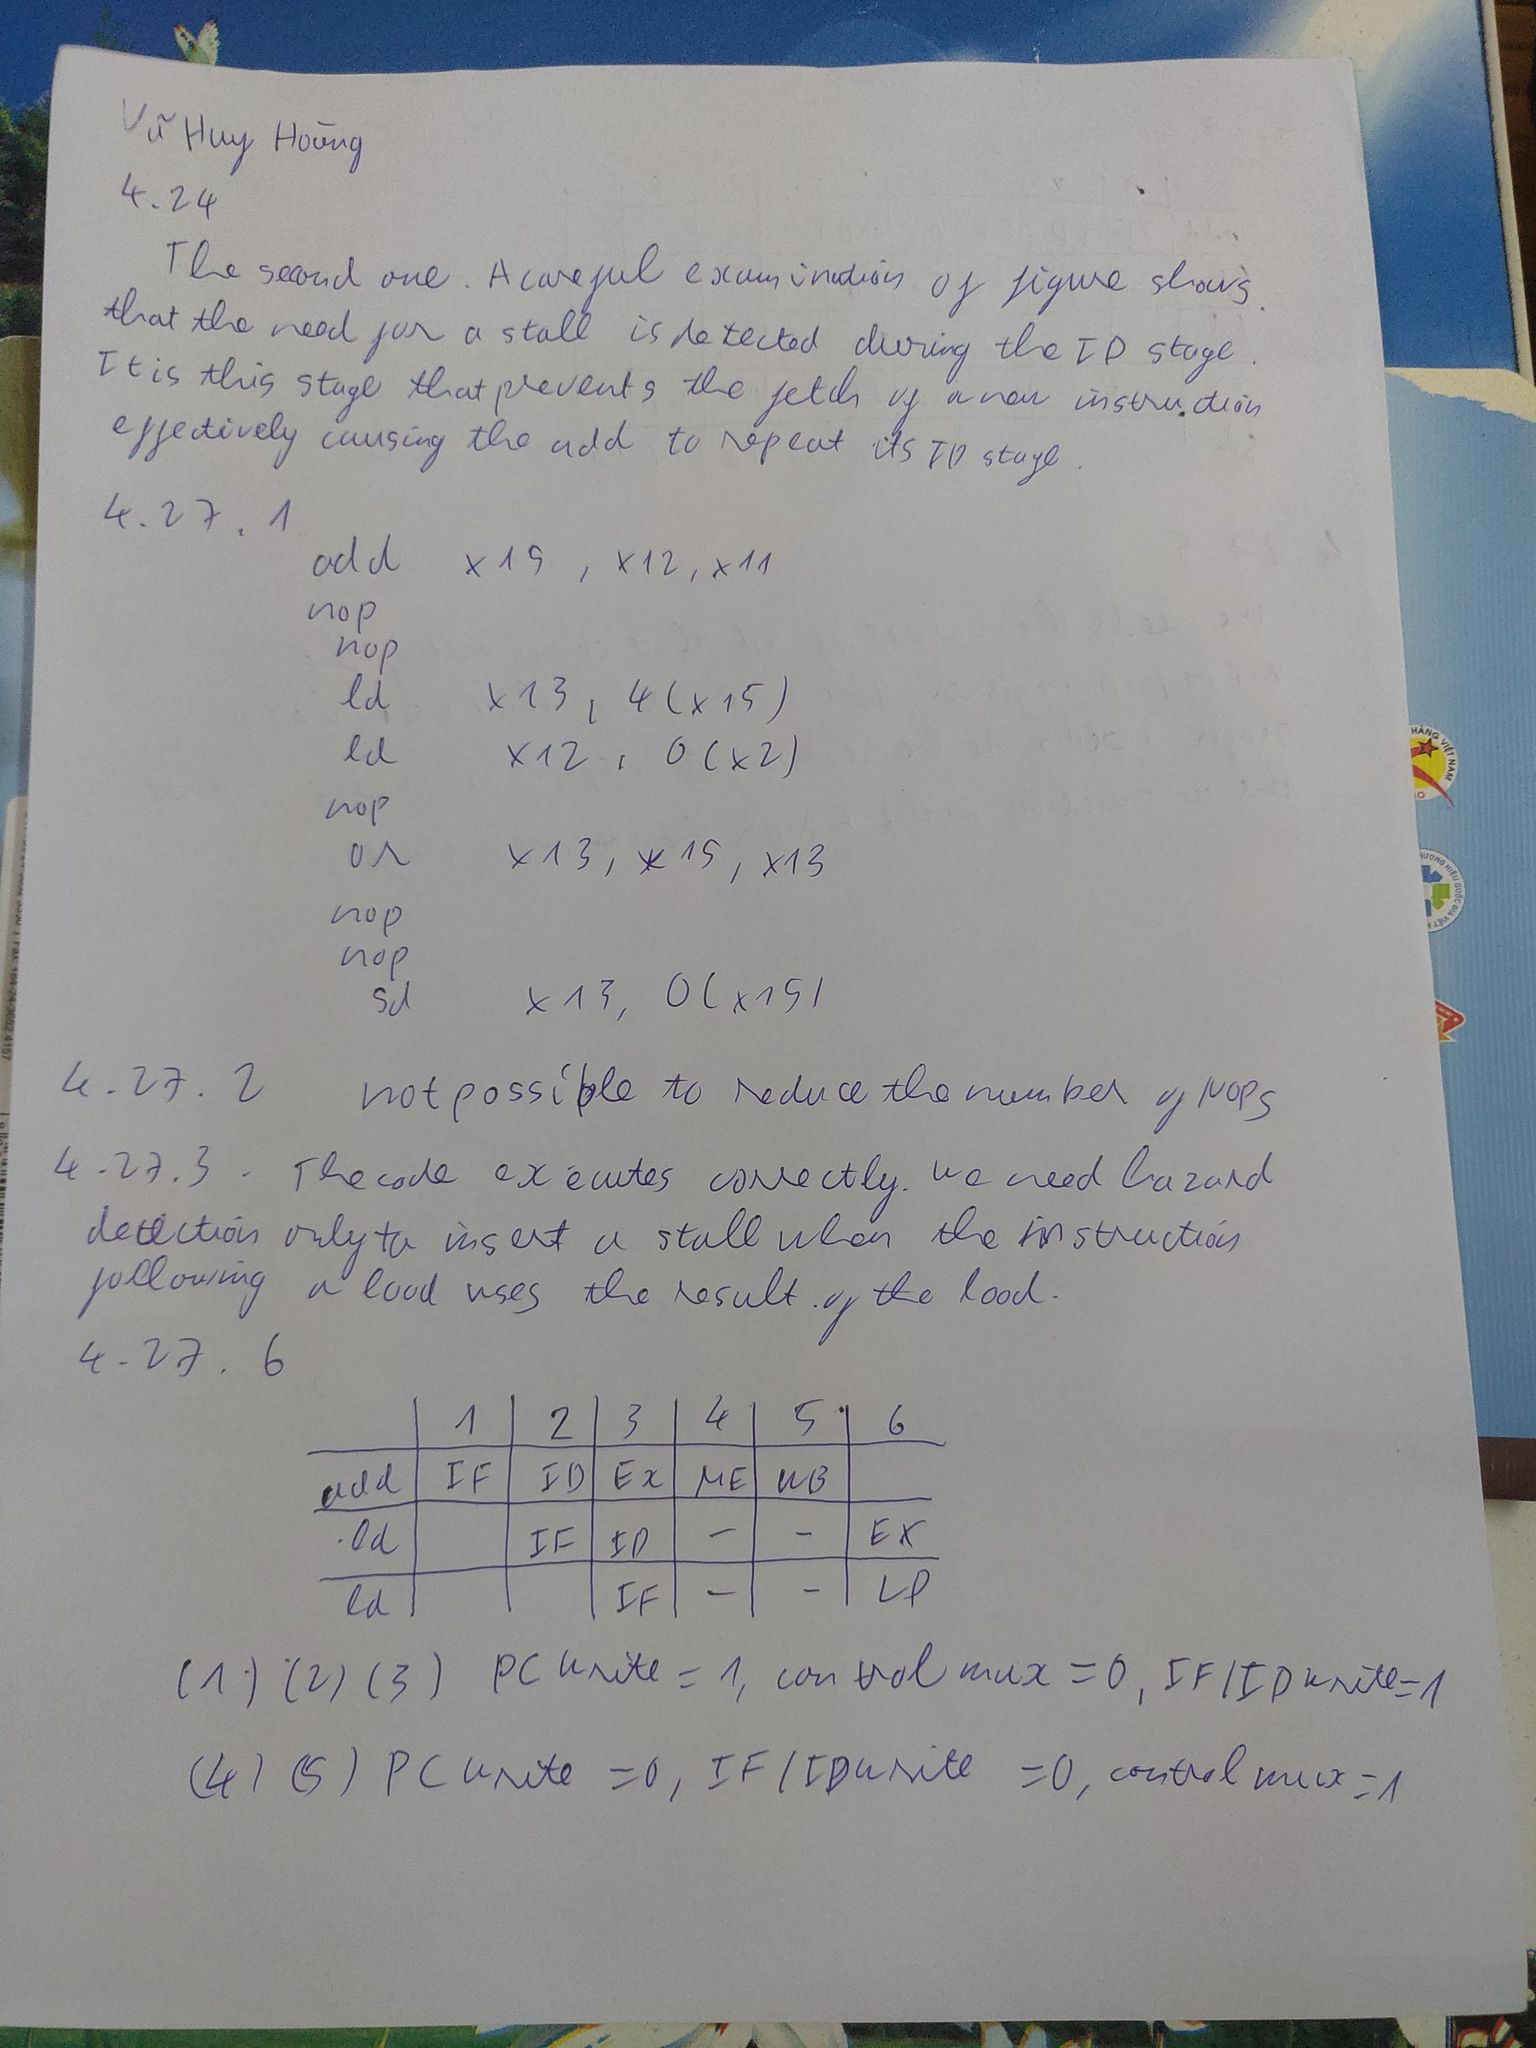 Vũ Huy Hoàng
4.24
The second one. A careful examination of figure shows
that the need for a stall is detected during the ID stage.
It is this stage that prevents the fetch of a new instruction
effectively causing the add to repeat its ID stage.
4.27.1
add x15, x12, x11
nop
nop
ld x13, 4(x15)
ld x12, 0(x2)
nop
or x13, x15, x13
nop
nop
sd x13, 0(x15)
4.27.2 not possible to reduce the number of NOPs
4.27.3. The code executes correctly. we need hazard
detection only to insert a stall when the instruction
following a load uses the result of the load.
4.27.6
1 2 3 4 5 6
add IF ID EX ME WB
ld IF ID - - EX
ld IF - - LD
(1) (2) (3) PC write = 1, control mux = 0, IF/ID write = 1
(4) (5) PC write = 0, IF/ID write = 0, control mux = 1
HÀNG VIỆT NAM